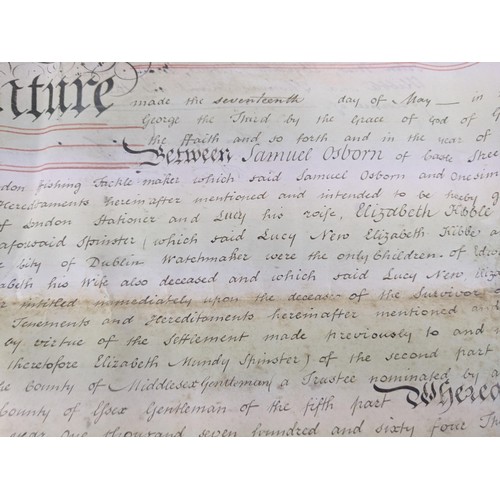 nture
made the seventeenth day of May in
George the Third by the Grace of God of G
the Faith and so forth and in the year of
Between Samuel Osborn of Stree
ndon fishing Tackle maker which said Samuel Osborn and Onesim
Hereditaments herein after mentioned and intended to be herby g
of London Stationer and Lucy his wife, Elizabeth Kibble
afousaid Spinster (which said Lucy New Elizabeth Kibbe a
e City of Dublin Watchmaker were the only Children of Edw
abeth his Wife also deceased and which said Lucy New Eliza
intitled immediately upon the decease of the Survivor
Tenements and Hereditaments hereinafter mentioned and
by virtue of the Settlement made previously to and
theretofore Elizabeth Mundy Spinster) of the second part
e County of Middlesex Gentleman) a Trustee nominated by a
County of Essex Gentleman of the fifth part Whereas
year One thousand seven hundred and sixty four Th